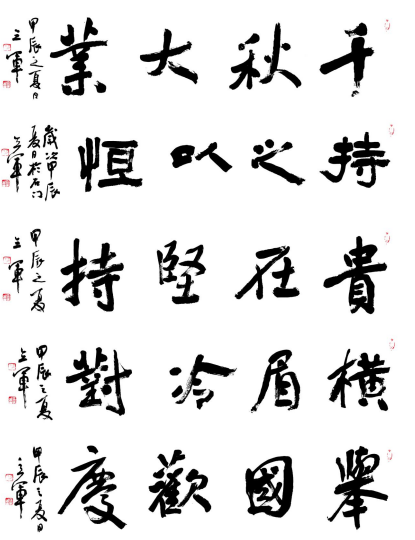 千秋大業
甲辰之夏日
立軍
持之以恒
歲次甲辰
夏日於石门
立軍
貴在堅持
甲辰之夏
立軍
橫眉冷對
甲辰之夏
立軍
舉國歡慶
甲辰之夏日
立軍